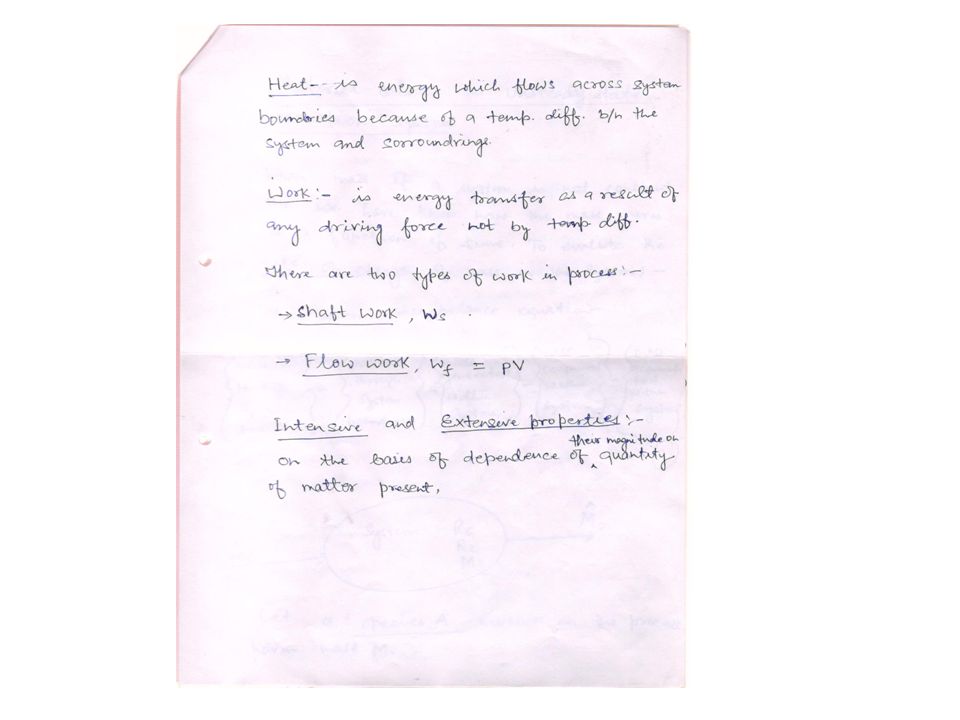 Heat-- is energy which flows across system
boundries because of a temp. diff. b/n the
system and sorroundrings.
Work:- is energy transfer as a result of
any driving force not by temp diff.
There are two types of work in process:-
→ shaft work, Ws
→ Flow work, Wf = PV
Intensive and Extensive properties:-
on the bases of dependence of their magnitude on quantity
of matter present,